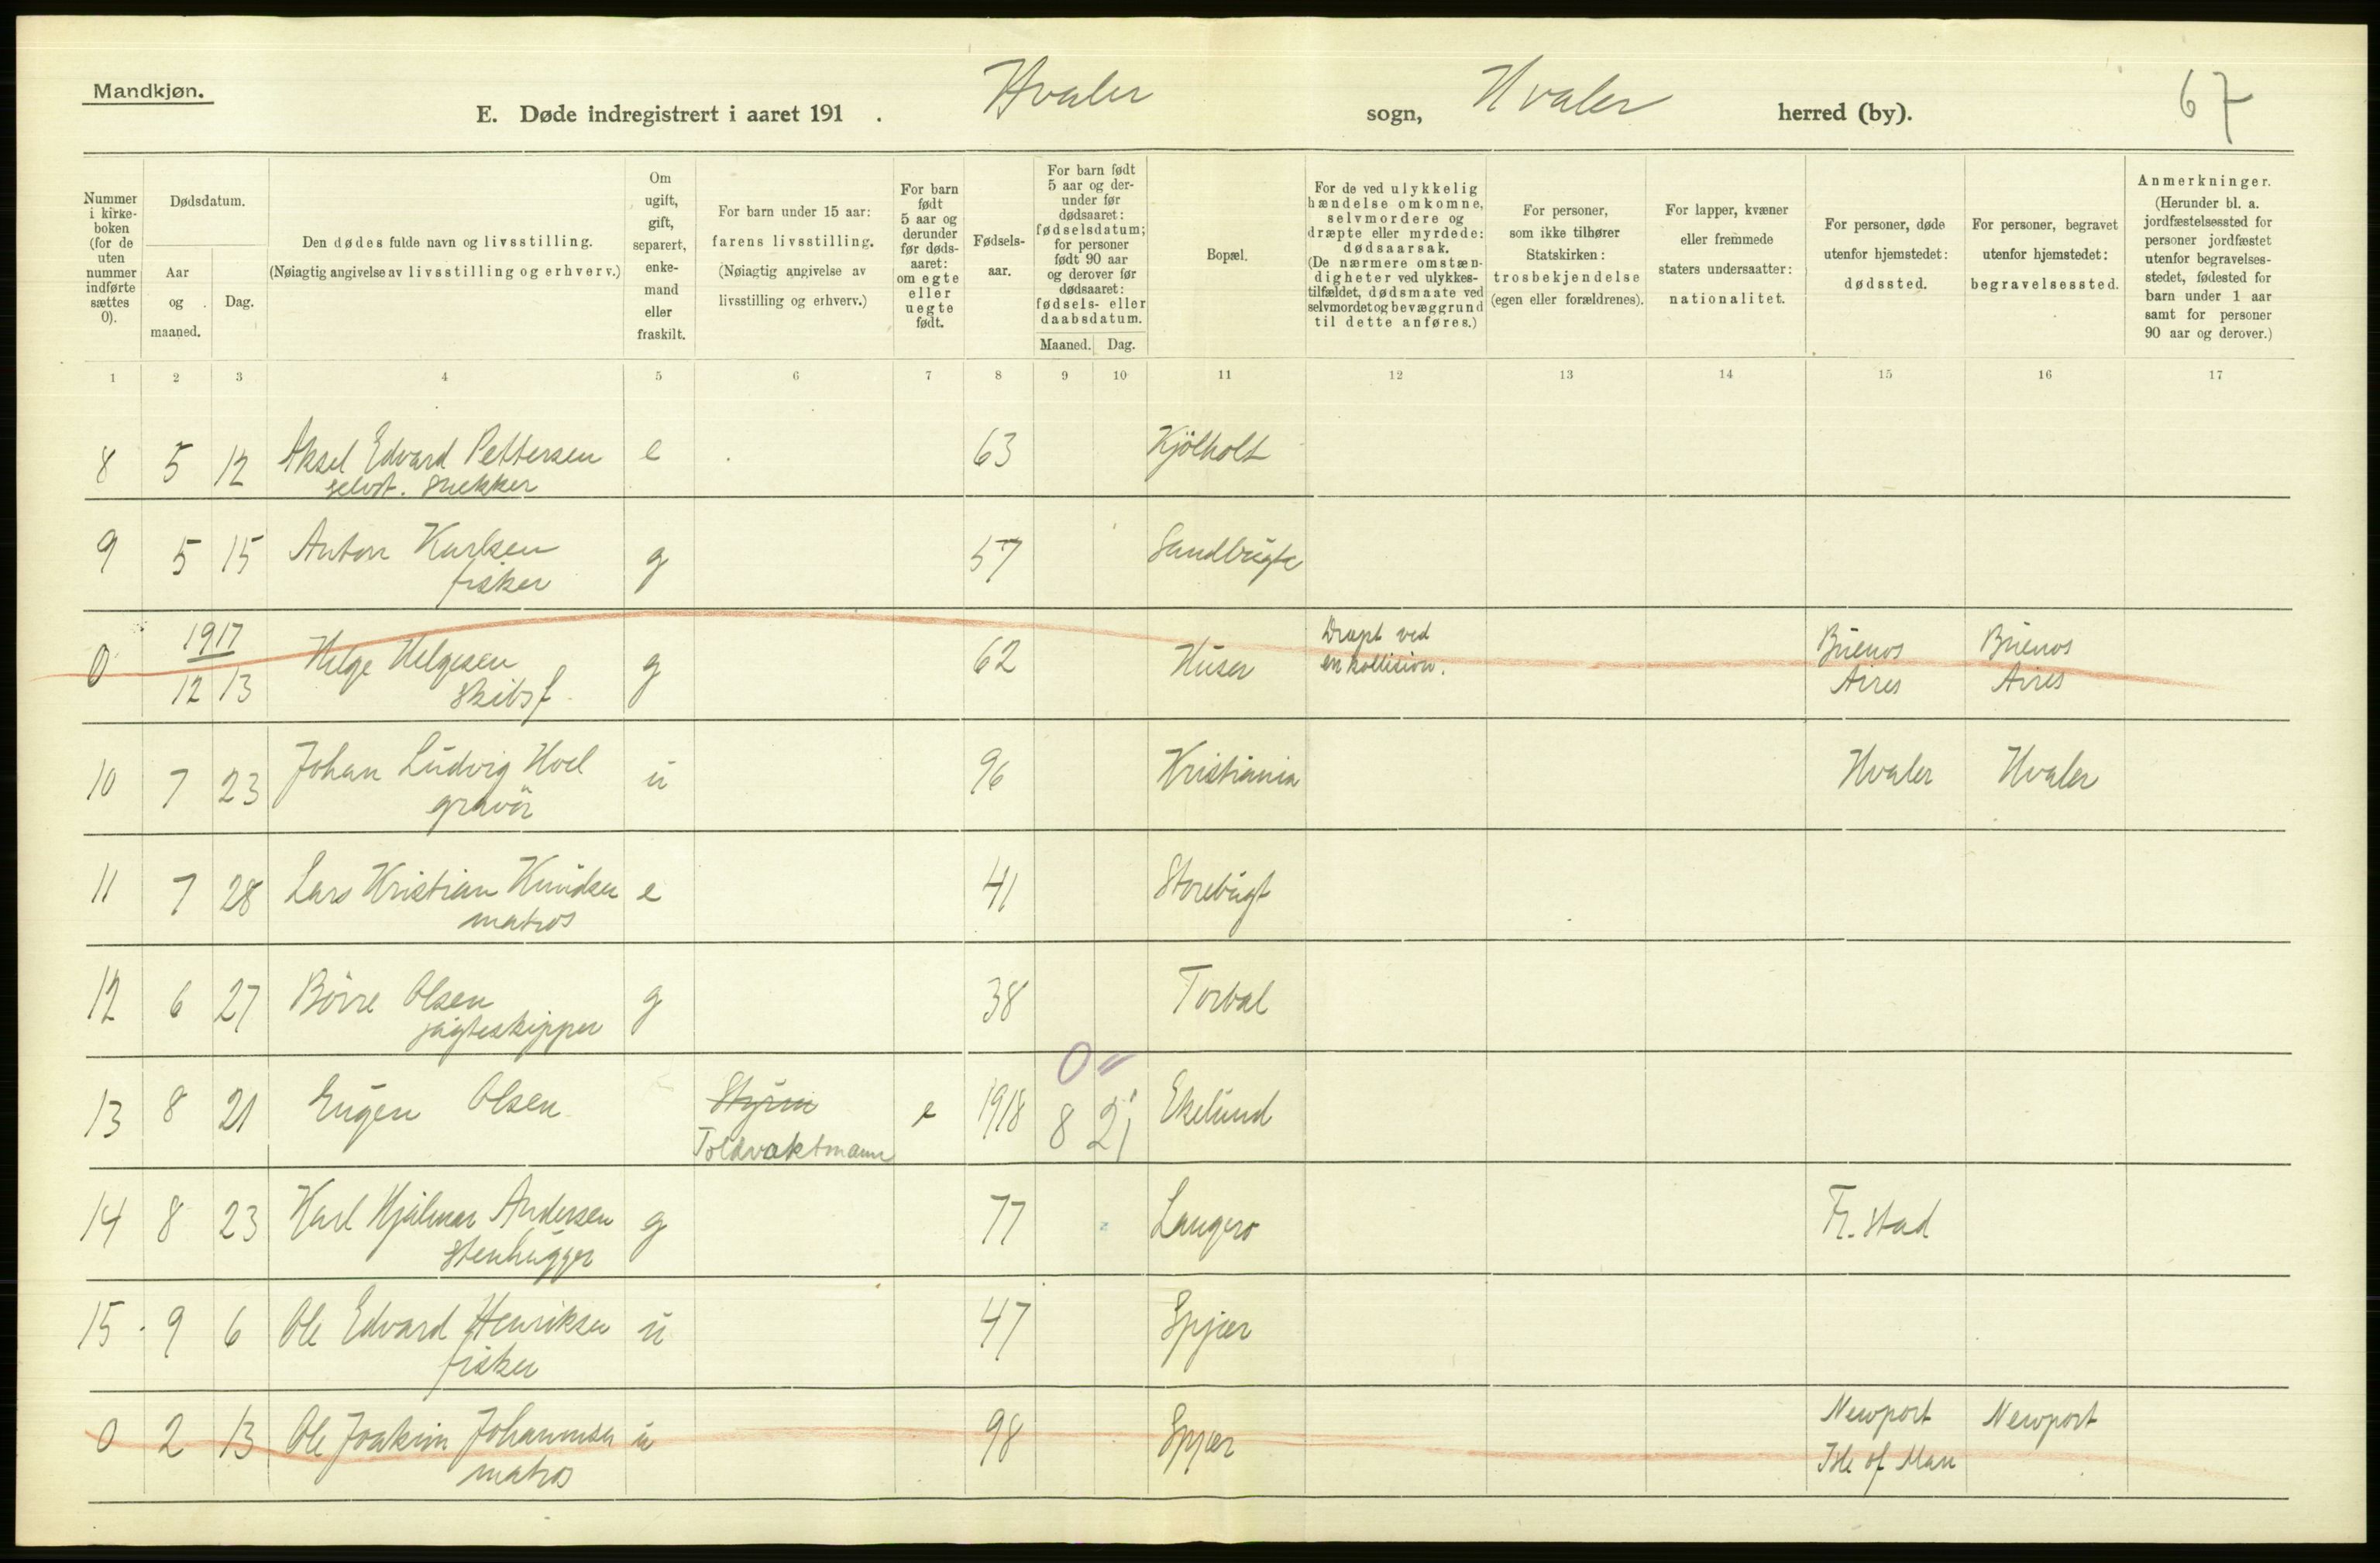 Mandkjøn.
E. Døde indregistrert i aaret 191 . Hvaler sogn, Hvaler herred (by). 67
Nummer i kirke- boken (for de uten nummer indførte sættes 0).
Dødsdatum.
Aar og maaned.
Dag.
Den dødes fulde navn og livsstilling.
(Nøiagtig angivelse av livsstilling og erhverv.)
Om ugift, gift, separert, enke- mand eller fraskilt.
For barn under 15 aar: farens livsstilling. (Nøiagtig angivelse av livsstilling og erhverv.)
For barn født 5 aar og derunder før døds- aaret: om egte eller uegte født.
Fødsels- aar.
For barn født 5 aar og der- under før dødsaaret: fødselsdatum; for personer født 90 aar og derover før dødsaaret: fødsels- eller daabsdatum.
Maaned. Dag.
Bopæl.
For de ved ulykkelig hændelse omkomne, selvmordere og dræpte eller myrdede: dødsaarsak. (De nærmere omstæn- digheter ved ulykkes- tilfældet, dødsmaate ved selvmordet og bevæggrund til dette anføres.)
For personer, som ikke tilhører Statskirken: trosbekjendelse (egen eller forældrenes).
For lapper, kvæner eller fremmede staters undersaatter: nationalitet.
For personer, døde utenfor hjemstedet: dødssted.
For personer, begravet utenfor hjemstedet: begravelsessted.
Anmerkninger. (Herunder bl. a. jordfæstelsessted for personer jordfæstet utenfor begravelses- stedet, fødested for barn under 1 aar samt for personer 90 aar og derover.)
1 2 3 4 5 6 7 8 9 10 11 12 13 14 15 16 17
8 5 12 Aksel Edvard Pettersen e 63 Kjölholt
selvst. snekker
9 5 15 Anton Karlsen g 57 Sandbugte
fisker
1917
0 12 13 Helge Helgesen g 62 Huser Drept ved Buenos Buenos
Skibsf. en kollision. Aires Aires
10 7 23 Johan Ludvig Hoel u 96 Kristiania Hvaler Hvaler
gravör
11 7 28 Lars Kristian Knudsen e 41 Storebugt
matros
12 6 27 Börre Olsen g 38 Torbal
jagteskipper
0
13 8 21 Eugen Olsen Styrm e 1918 8 21 Ekelund
Toldvaktmann
14 8 23 Karl Hjalmar Andersen g 77 Laugero Fr.stad
Stenhugger
15 9 6 Ole Edvard Henriksen u 47 Spjær
fisker
0 2 13 Ole Joakim Johannesen u 98 Spjær Newport Newport
matros Isle of Man